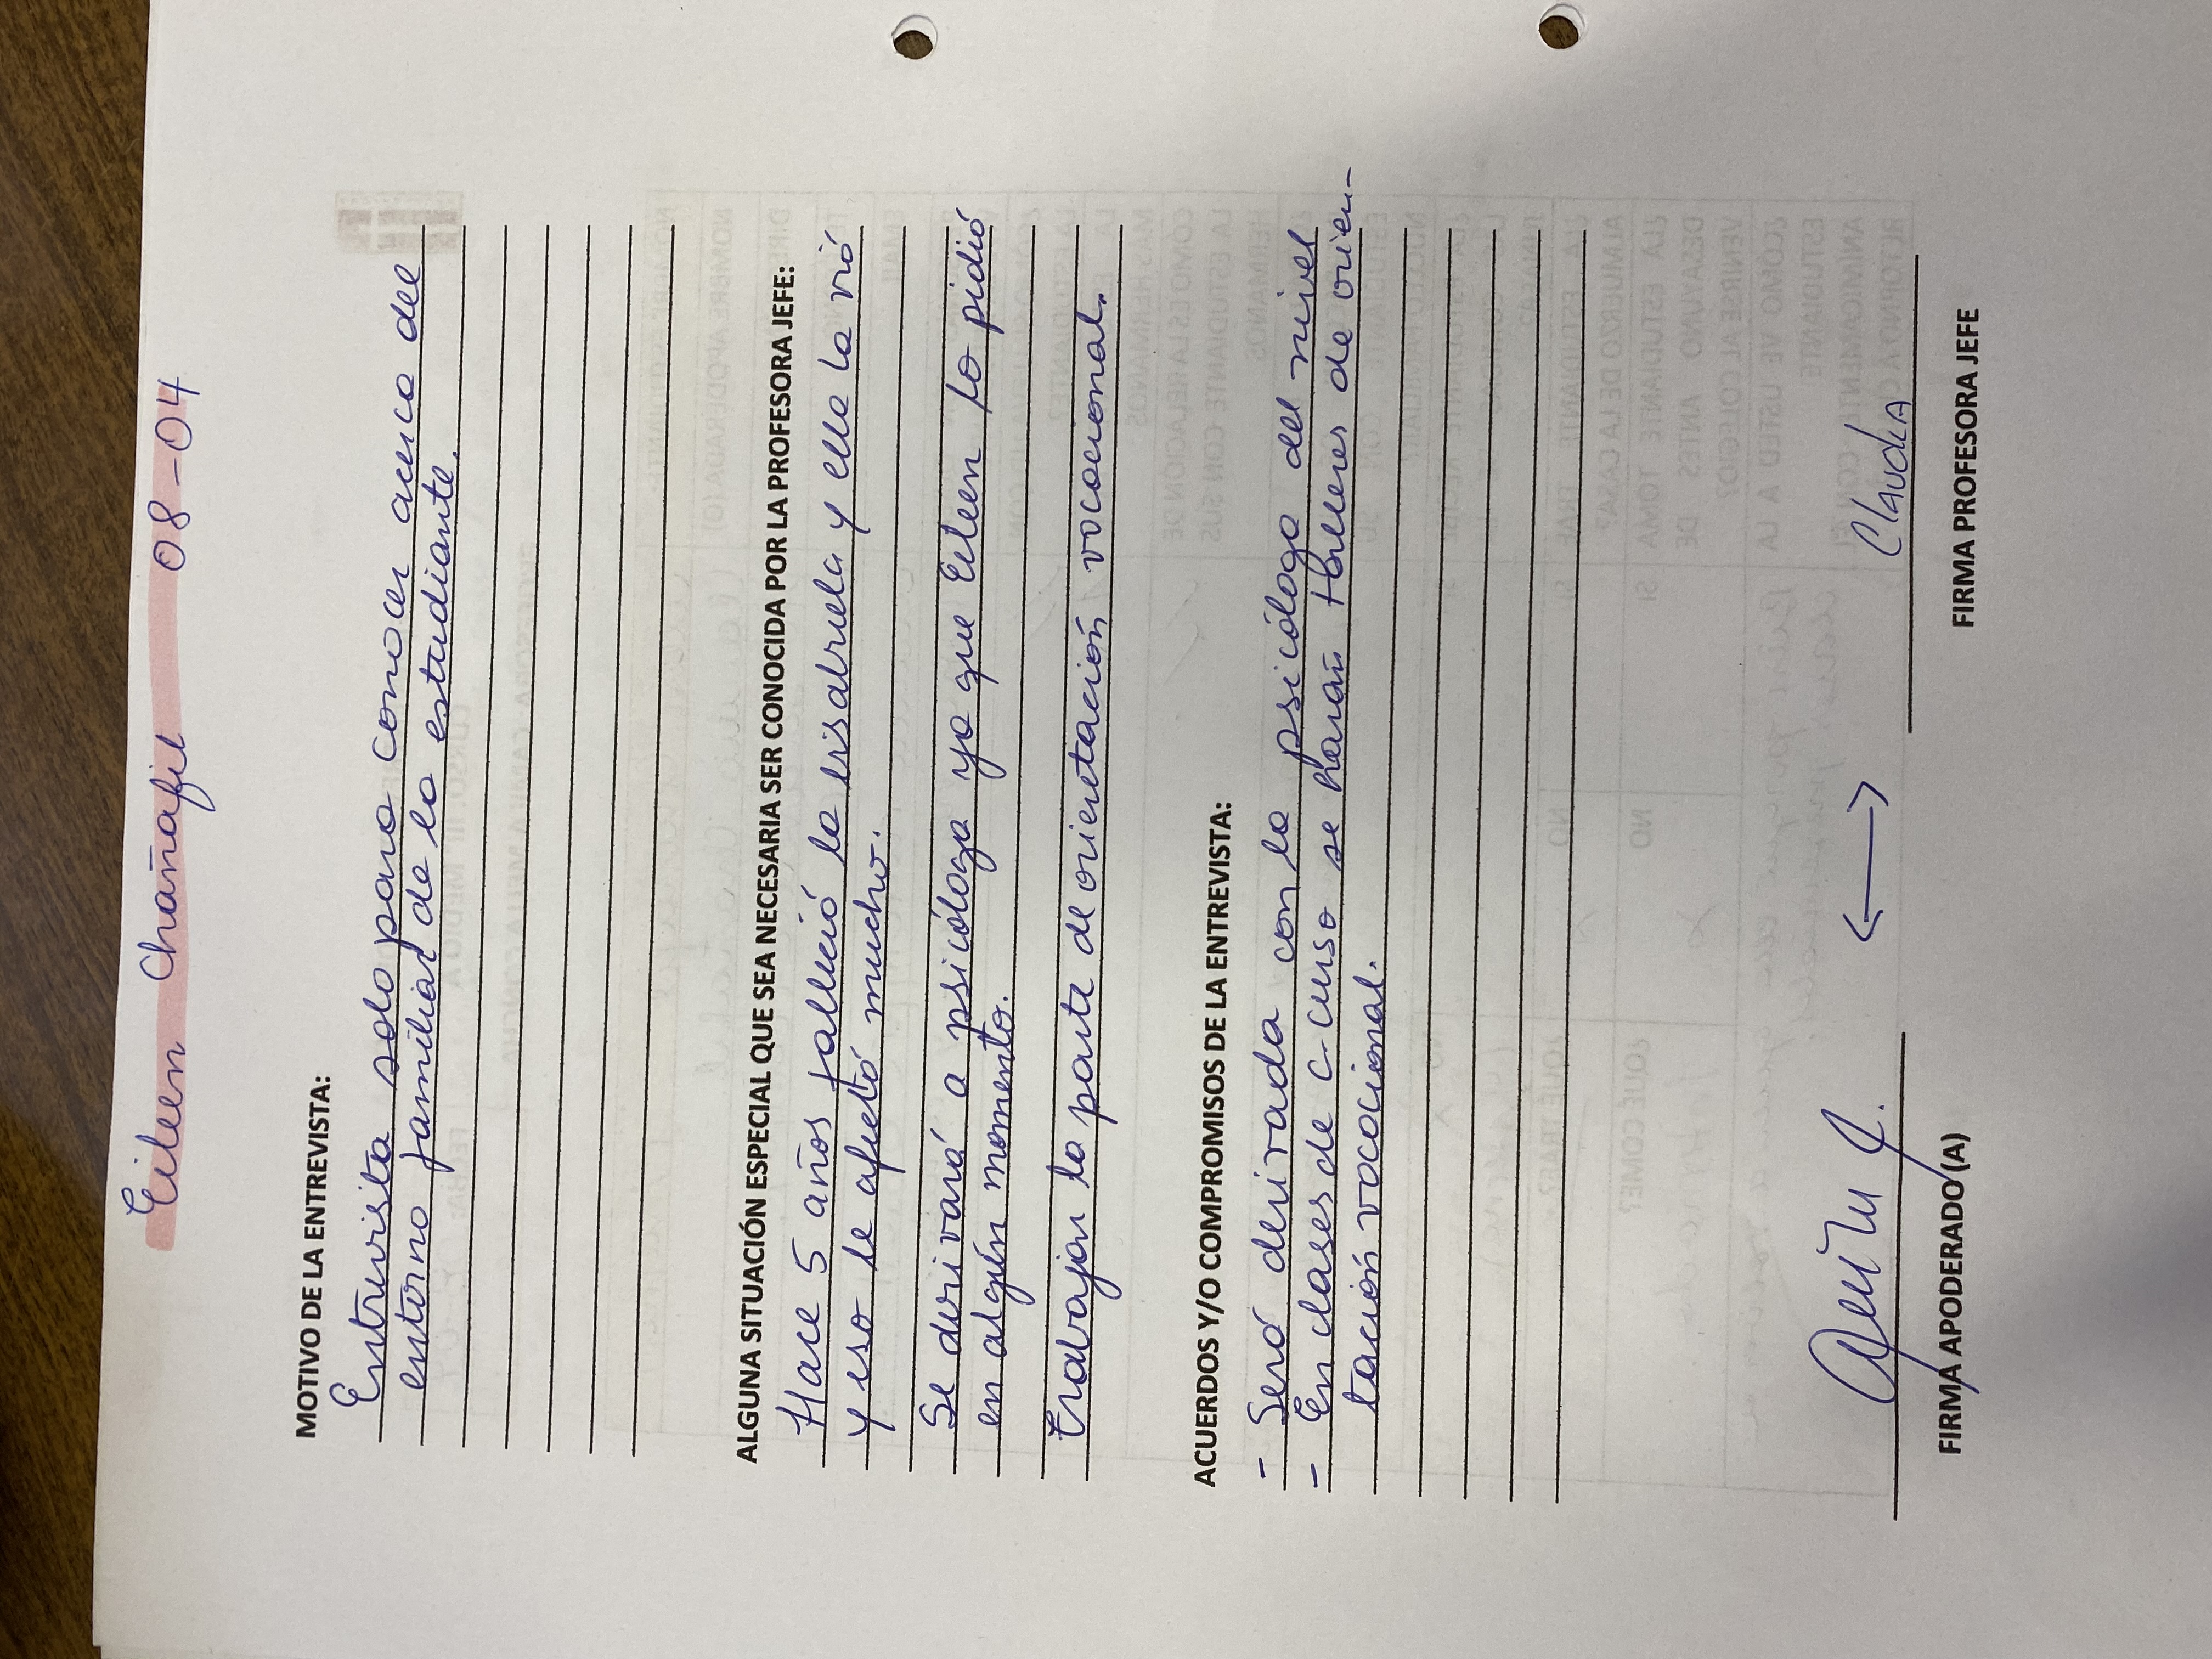 Eileen Chañafil 08-04
MOTIVO DE LA ENTREVISTA:
Entrevista solo para conocer acerca del
entorno familiar de la estudiante.
ALGUNA SITUACIÓN ESPECIAL QUE SEA NECESARIA SER CONOCIDA POR LA PROFESORA JEFE:
Hace 5 años falleció la bisabuela y ella la vió
y eso le afectó mucho.
Se derivará a psicóloga ya que Eileen lo pidió
en algún momento.
Trabajar la parte de orientación vocacional.
ACUERDOS Y/O COMPROMISOS DE LA ENTREVISTA:
- Será derivada con la psicóloga del nivel
- En clases de c. curso se harán talleres de orien-
tación vocacional.
Claudia
FIRMA APODERADO(A)
FIRMA PROFESORA JEFE